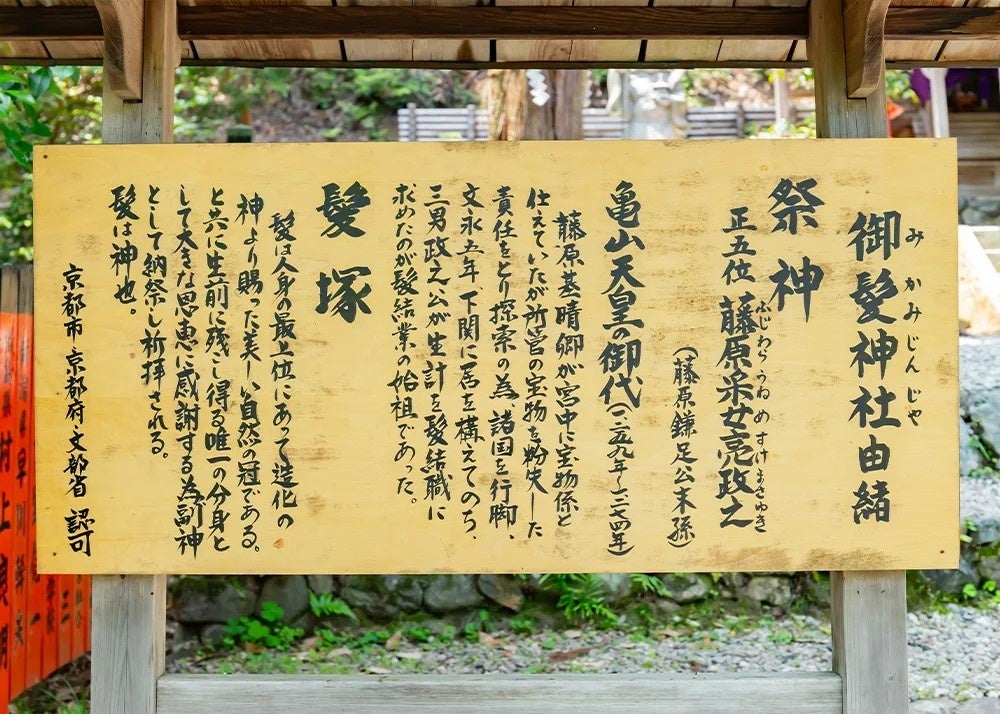 みかみじんじや
御髪神社由緒
祭神
ふじわらうねめすけまさゆき
正五位 藤原采女亮政之
（藤原鎌足公末孫）
亀山天皇の御代（一二五九年～一二七四年）
藤原基晴卿が宮中に宝物係と
仕えていたが所営の宝物を紛失した
責任をとり探索の為、諸国を行脚、
文永五年、下関に居を構えてのち、
三男政之公が生計を髪結職に
求めたのが髪結業の始祖であった。
髪塚
髪は人身の最上位にあって造化の
神より賜った美しい自然の冠である。
と共に生前に残こし得る唯一の分身と
して大きな恩恵に感謝する為副神
として納祭し祈拝される。
髪は神也。
京都市・京都府・文部省 認可
村上